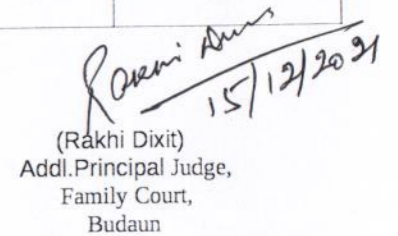 Rakhi
15/12/2021
(Rakhi Dixit)
Addl.Principal Judge,
Family Court,
Budaun